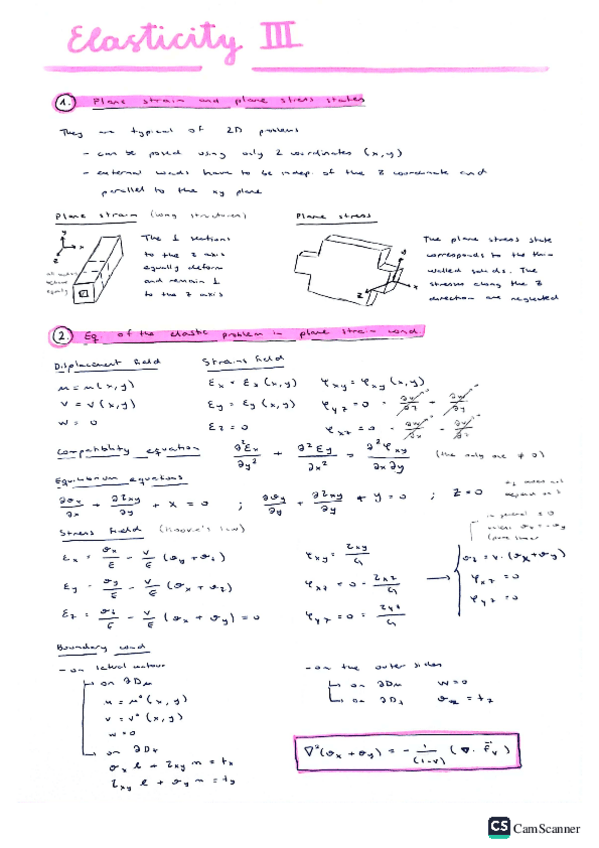 Elasticity III
1. Plane strain and plane stress states
They are typical of 2D problems
- can be posed using only 2 coordinates (x,y)
- external loads have to be indep. of the z coordinate and
parallel to the xy plane
Plane strain (long structures)
The ⊥ sections
to the z axis
equally deform
and remain ⊥
to the z axis
Plane stress
The plane stress state
corresponds to the thin
walled solids. The
stresses along the z
direction are neglected
2. Eq. of the elastic problem in plane strain cond
Displacement field
u = u(x,y)
v = v(x,y)
w = 0
Strains field
εx = εx(x,y)
εy = εy(x,y)
εz = 0
γxy = γxy(x,y)
γyz = 0 = ∂v/∂z + ∂w/∂y
γxz = 0 =
Compatibility equation ∂²εx/∂y² + ∂²εy/∂x² = ∂²γxy/∂x∂y (the only one ≠ 0)
Equilibrium equations
∂σx/∂x + ∂τxy/∂y + X = 0 ; ∂σy/∂y + ∂τxy/∂x + Y = 0 ; Z = 0
Stress field (Hooke's law)
εx = σx/E - ν/E (σy + σz)
εy = σy/E - ν/E (σx + σz)
εz = σz/E - ν/E (σx + σy) = 0
γxy = τxy/G
γxz = 0 = τxz/G
γyz = 0 = τyz/G
σz = ν·(σx+σy)
γxz = 0
γyz = 0
Boundary cond
- on lateral contour
on ∂Du
u = u°(x,y)
v = v°(x,y)
w = 0
on ∂Dt
σx l + τxy m = tx
τxy l + σy m = ty
- on the outer sides
on ∂Du w = 0
on ∂Dt σz = tz
∇²(σx + σy) = - 1/(1-ν) (∇· F̄v)
CS CamScanner